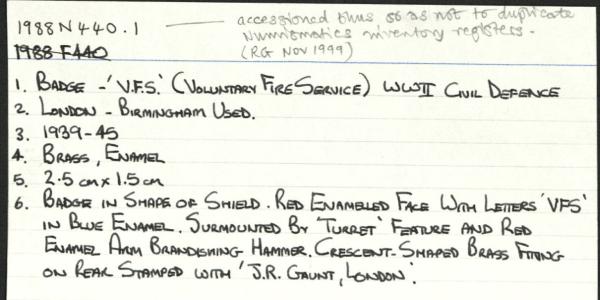 1988 N 440.1 ——— accessioned thus so as not to duplicate
Numismatics inventory registers.
1988 F440 (RG Nov 1999)
1. BADGE - 'V.F.S.' (VOLUNTARY FIRE SERVICE) WWII CIVIL DEFENCE
2. LONDON - BIRMINGHAM USED.
3. 1939-45
4. BRASS, ENAMEL
5. 2.5 cm x 1.5 cm
6. BADGE IN SHAPE OF SHIELD. RED ENAMELLED FACE WITH LETTERS 'VFS'
IN BLUE ENAMEL. SURMOUNTED BY 'TURRET' FEATURE AND RED
ENAMEL ARM BRANDISHING HAMMER. CRESCENT-SHAPED BRASS FITTING
ON REAR STAMPED WITH 'J.R. GAUNT, LONDON'.